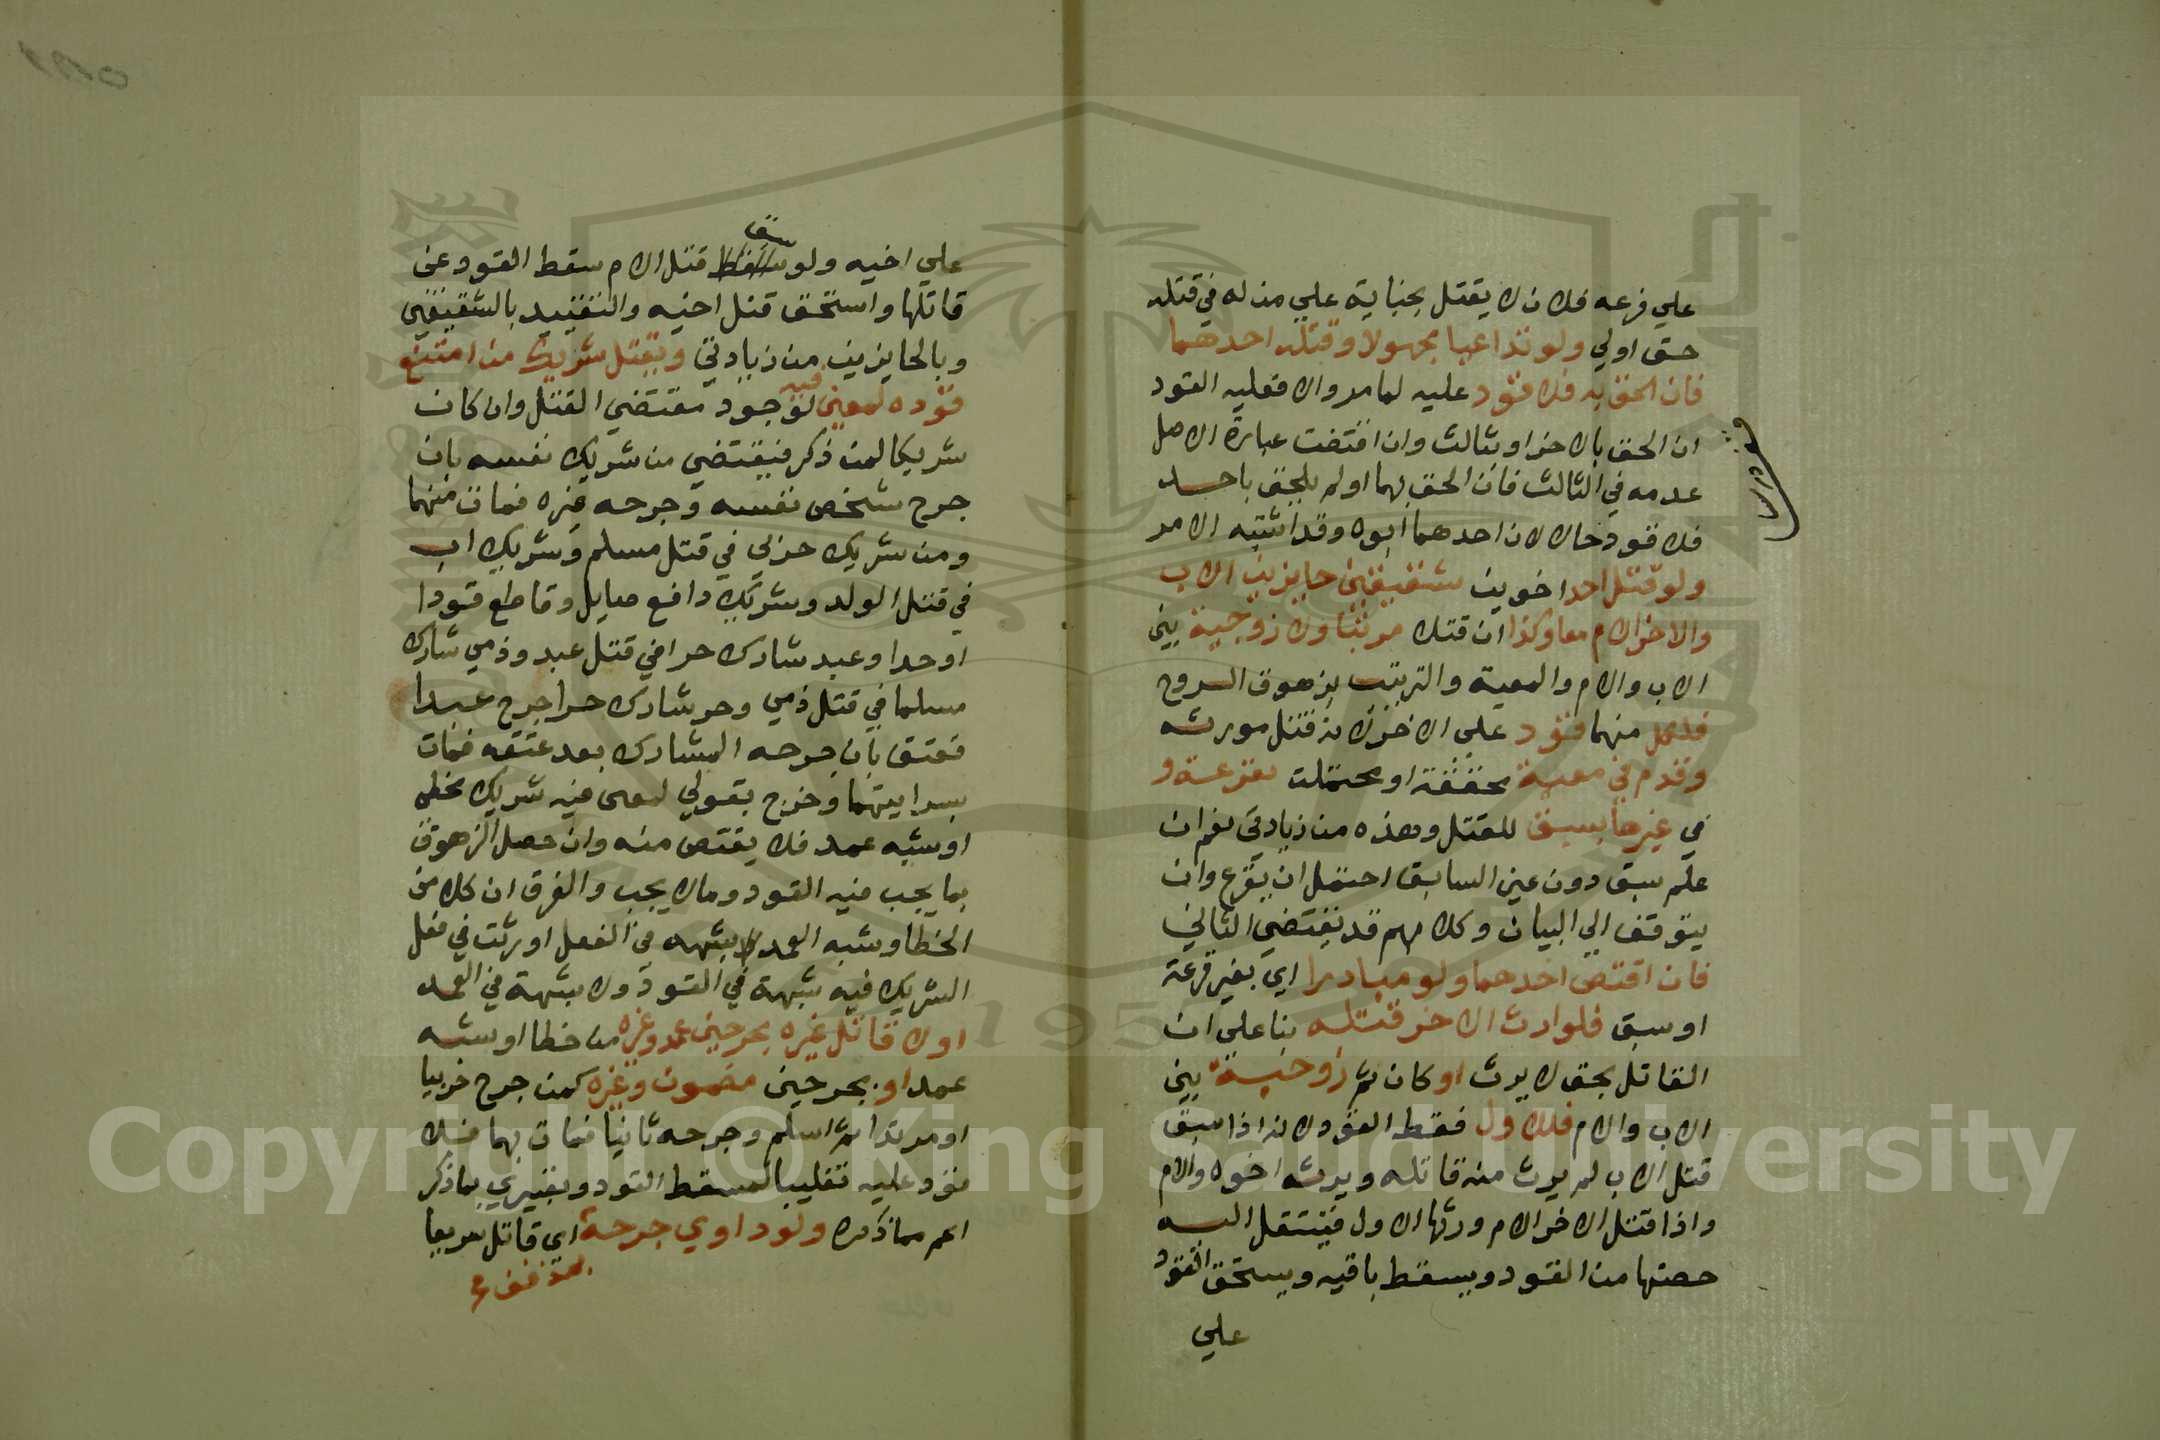 علي فرعه فلان لا يقتل بجناية علي من له في قتله
حق اولي ولو تداعيا مجهولا وقتله احدهما
فان الحق به فلا قود عليه لما مر والا فعليه القود
ان الحق بالاخر او بثالث وان اقتضت عبارة الاصل
عدمه في الثالث فان الحق بهما او لم يلحق باحد
فلا قود حالا لان احدهما ابوه وقد اشتبه الامر
ولو قتل احد اخوين شقيقين حايزين الاب
والاخر الام معا وكذا ان قتلا مرتبا ولا زوجية بين
الاب والام والمعية والترتيب بزهوق الروح
فلكل منهما قود علي الاخر لانه قتل مورثه
وقدم في معية محققة او محتملة بقرعة و
في غيرها بسبق للقتل وهذه من زيادتي نعم ان
علم سبق دون عين السابق احتمل ان يقرع وان
يتوقف الي البيان وكلامهم قد يقتضي الثاني
فان اقتص احدهما ولو مبادرا اي بغير قرعة
او سبق فلوارث الاخر قتله بنا علي ان
القاتل بحق لا يرث او كان ثم زوجية بين
الاب والام فللاول فقط القود لانه اذا سبق
قتل الاب لم يرث منه قاتله ويرثه اخوه والام
واذا قتل الاخر الام ورثها الاول فينتقل اليه
حصتها من القود ويسقط باقيه ويستحق القود
علي
علي اخيه ولو سبق قتل الام سقط القود عن
قاتلها واستحق قتل اخيه والتقييد بالشقيقين
وبالحايزين من زيادتي ويقتل شريك من امتنع
قوده لمعني فيه لوجود مقتضي القتل وان كان
شريكا لمن ذكر فيقتضي من شريك نفسه بان
جرح شخص نفسه وجرحه غيره فمات منهما
ومن شريك حربي في قتل مسلم وشريك اب
في قتل الولد وشريك دافع صايل وقاطع قودا
او حدا وعبد شارك حرا في قتل عبد وذمي شارك
مسلما في قتل ذمي وحر شارك حرا جرح عبدا
فعتق بان جرحه المشارك بعد عتقه فمات
بسرايتهما وخرج بقولي لمعني فيه شريك مخطي
او شبه عمد فلا يقتص منه وان حصل الزهوق
بما يجب فيه القود وما لا يجب والفرق ان كلا من
الخطا وشبه العمد شبهه في الفعل اورثت في فعل
الشريك فيه شبهة في القود ولا شبهة في العمد
او لا قاتل غيره بجرحين عمد وغيره من خطا او شبه
عمد او بجرحين مضمون وغيره كمن جرح حربيا
او مرتدا ثم اسلم وجرحه ثانيا فمات بهما فلا
قود عليه تغليبا لمسقط القود وتعبيري بما ذكر
اعم مما ذكره ولو داوي جرحه اي قاتل سريعا
بمذفف
Copyright © King Saud University
1957